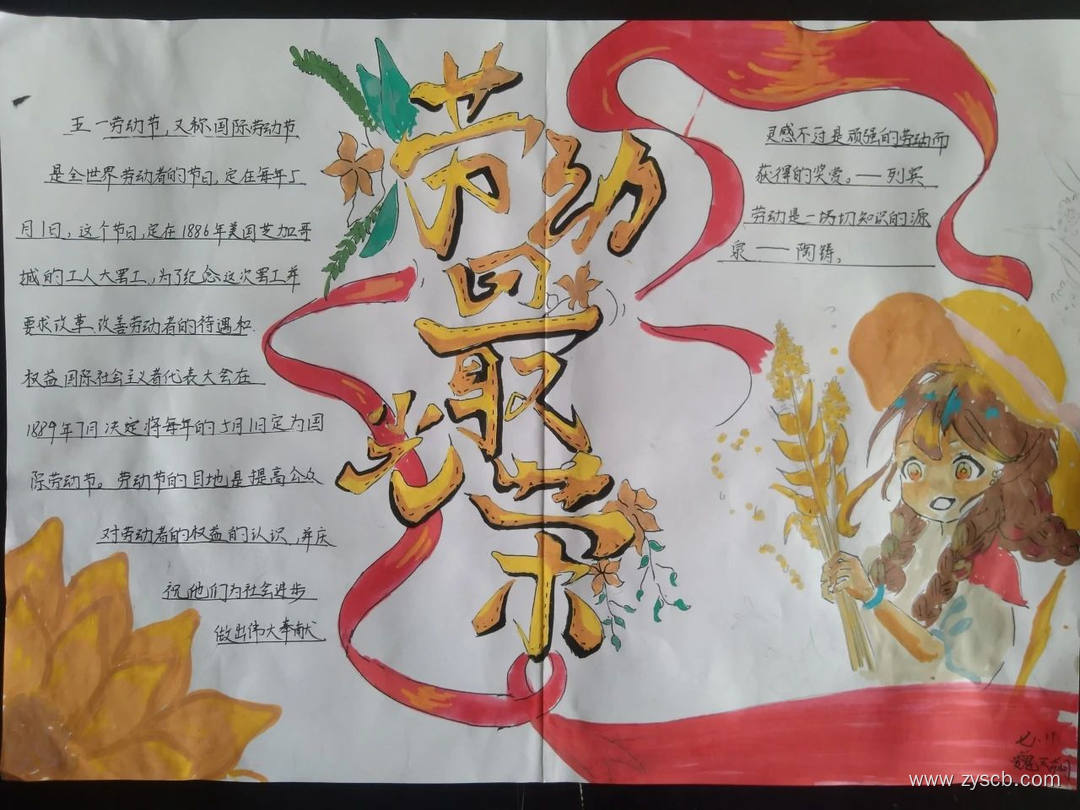 劳动最光荣
五一劳动节,又称国际劳动节
是全世界劳动者的节日,定在每年5
月1日,这个节日,定在1886年美国芝加哥
城的工人大罢工,为了纪念这次罢工并
要求改革,改善劳动者的待遇和
权益国际社会主义者代表大会在
1889年7月决定将每年的5月1日定为国
际劳动节。劳动节的目地是提高公众
对劳动者的权益的认识,并庆
祝他们为社会进步
做出伟大奉献
灵感不过是顽强的劳动而
获得的奖赏。——列宾
劳动是一切知识的源
泉——陶铸。
七.11
www.zyscb.com